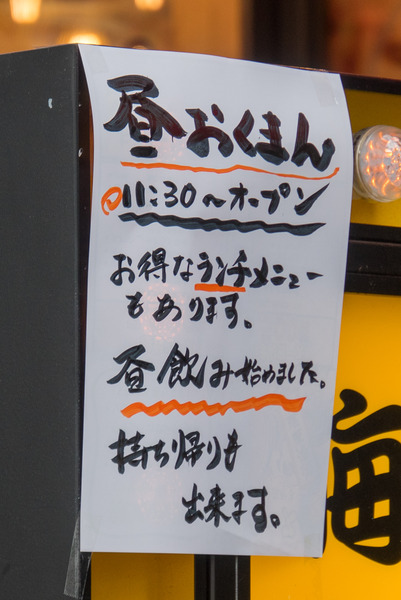 昼おくまん
11:30〜オープン
お得なランチメニュー
もあります。
昼飲み始めました。
持ち帰りも
出来ます。